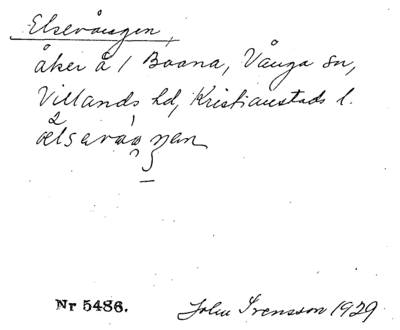 Elsevången,
åker å 1 Boana, Vånga sn,
Villands hd, Kristianstads l.
Nr 5486. John Svensson 1929